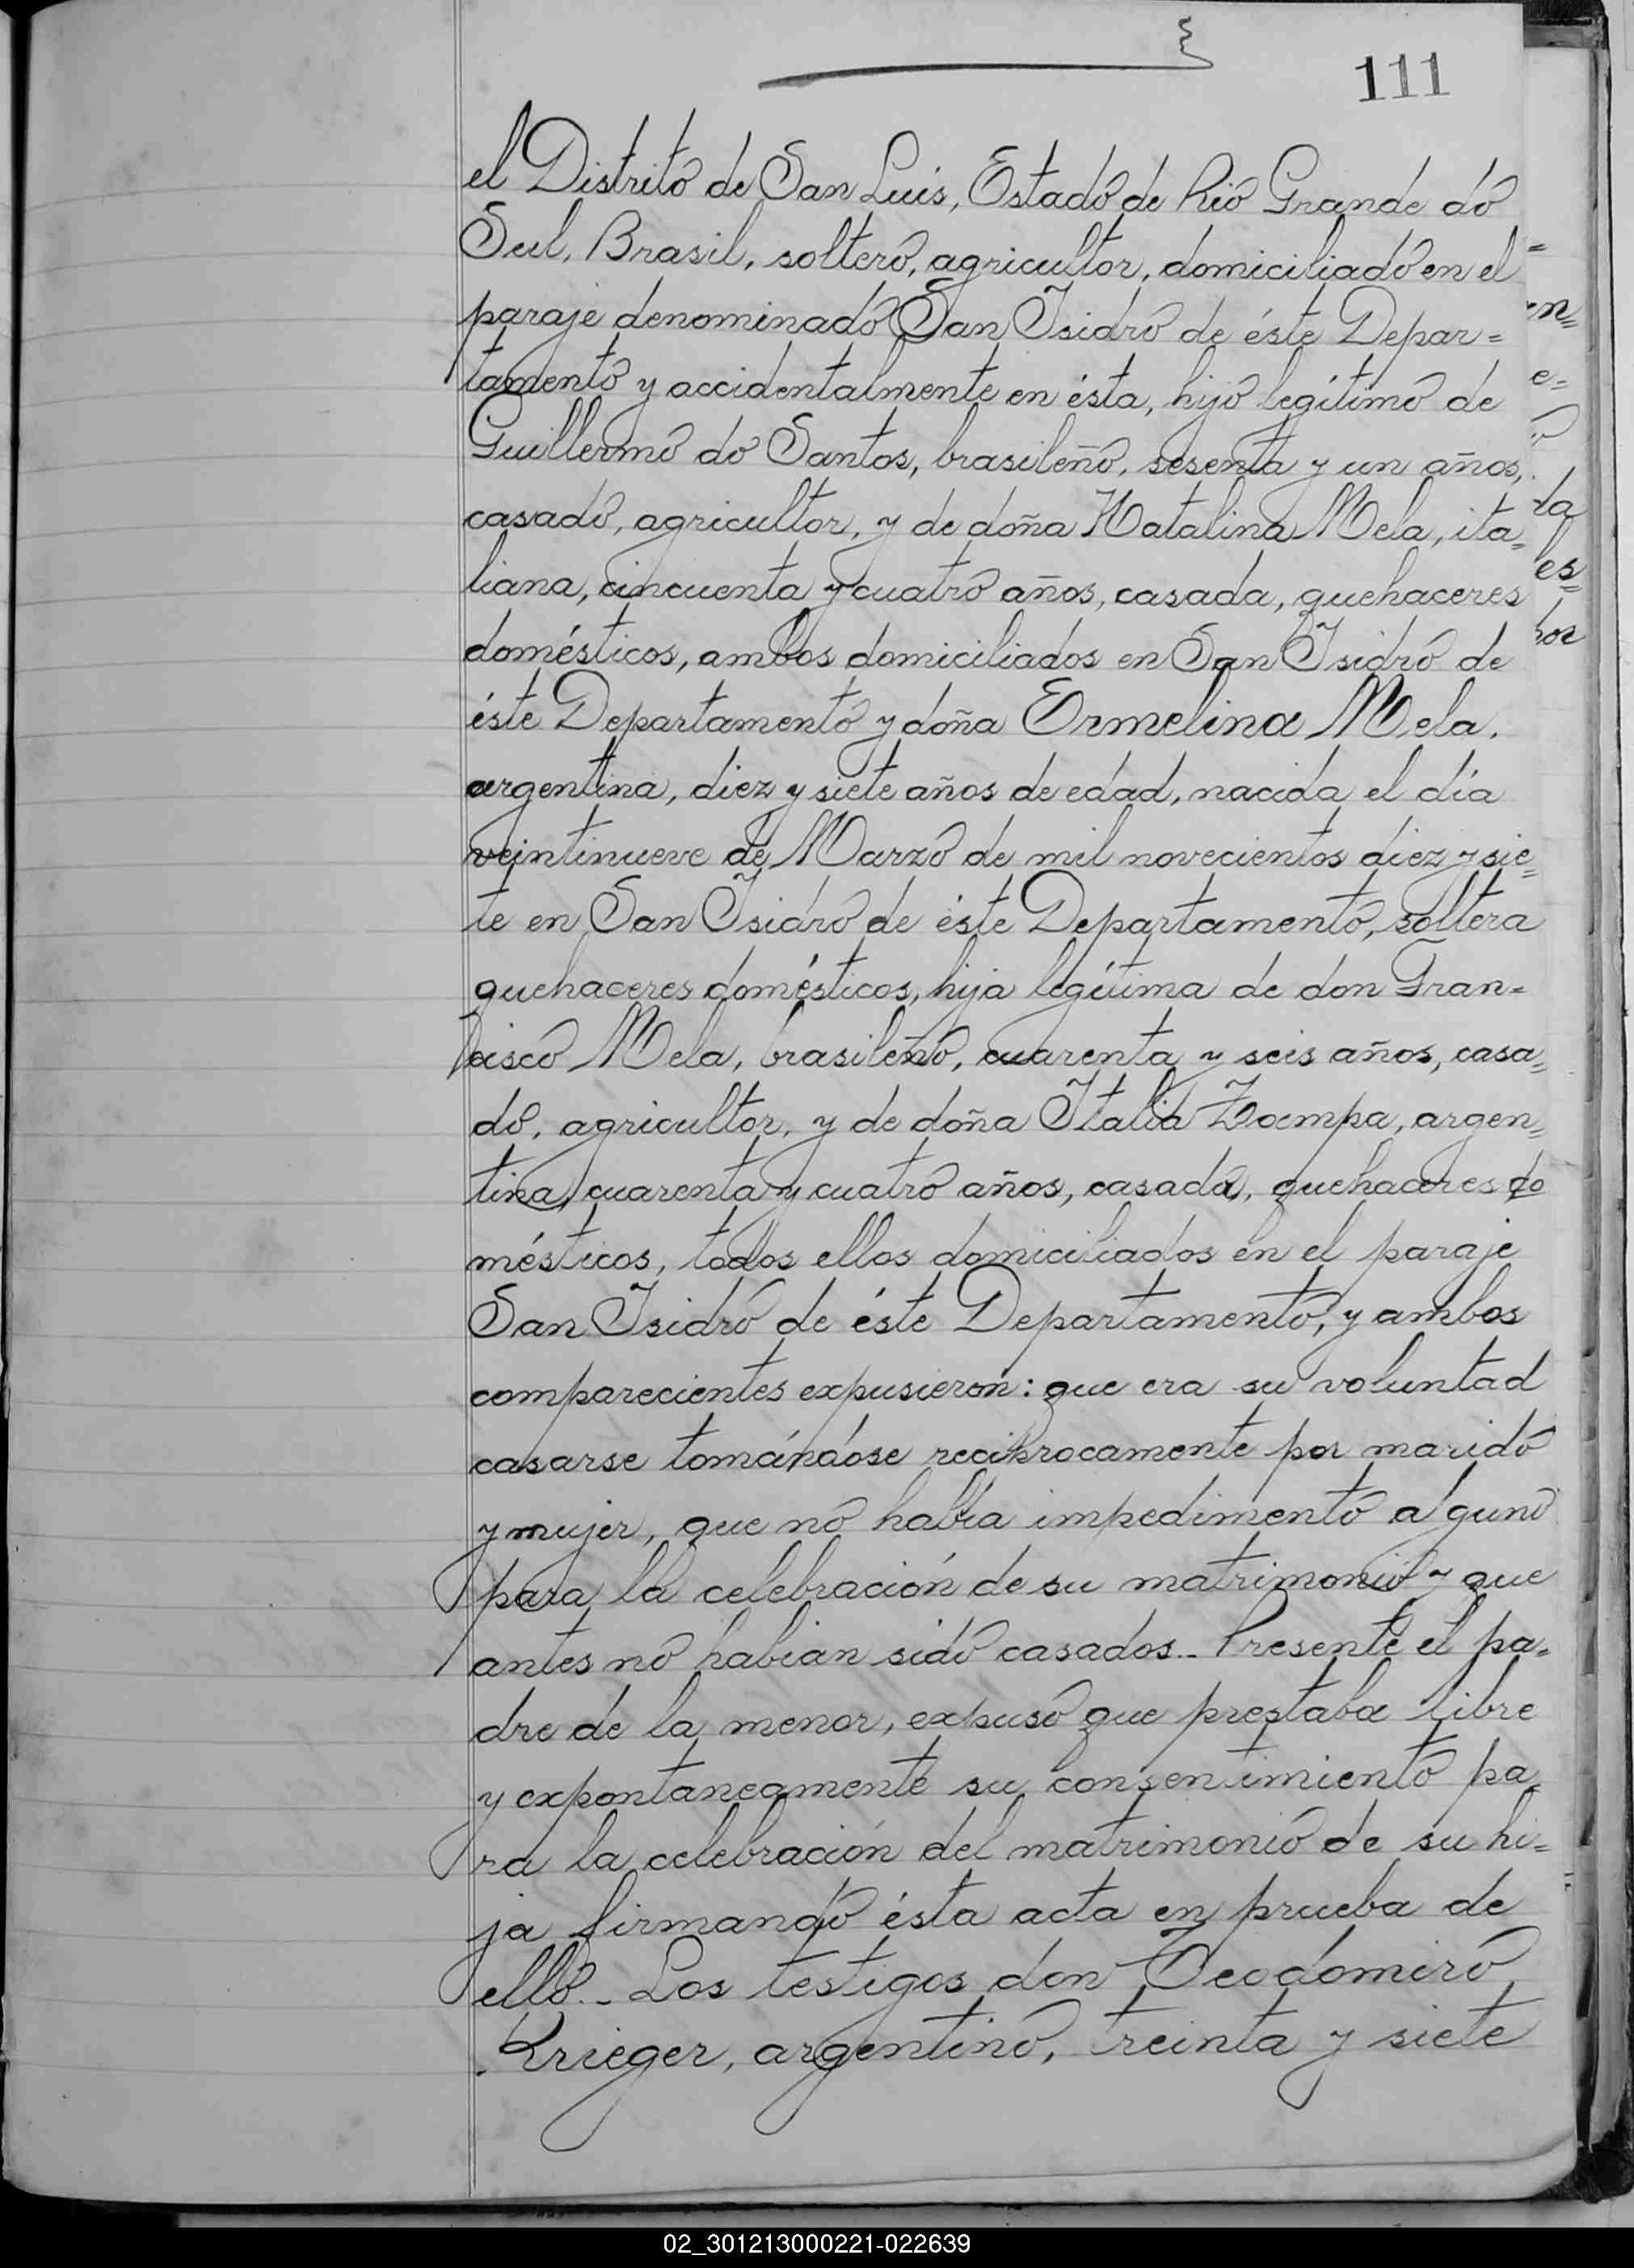 111
el Distrito de San Luis, Estado de Rio Grande do
Sul, Brasil, soltero, agricultor, domiciliado en el
paraje denominado San Isidro de éste Depar=
tamento y accidentalmente en ésta, hijo legítimo de
Guillermo do Santos, brasileño, sesenta y un años,
casado, agricultor, y de doña Natalina Mela, ita=
liana, cincuenta y cuatro años, casada, quehaceres
domésticos, ambos domiciliados en San Isidro de
éste Departamento y doña Ermelina Mela,
argentina, diez y siete años de edad, nacida el día
veintinueve de Marzo de mil novecientos diez y sie=
te en San Isidro de éste Departamento, soltera
quehaceres domésticos, hija legítima de don Fran=
cisco Mela, brasileño, cuarenta y seis años, casa=
do, agricultor, y de doña Italia Zampa, argen=
tina, cuarenta y cuatro años, casada, quehaceres do
mésticos, todos ellos domiciliados en el paraje
San Isidro de éste Departamento, y ambos
comparecientes expusieron: que era su voluntad
casarse tomándose reciprocamente por marido
y mujer, que no había impedimento alguno
para la celebración de su matrimonio y que
antes no habian sido casados.- Presente el pa=
dre de la menor, expuso que prestaba libre
y expontaneamente su consentimiento pa=
ra la celebración del matrimonio de su hi=
ja firmando ésta acta en prueba de
ello.- Los testigos don Teodomiro
Krieger, argentino, treinta y siete
02_301213000221-022639